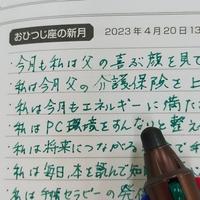 おひつじ座の新月 2023年4月20日13
・今月も私は父の喜ぶ顔を見て
・私は今月父の介護保険を上
・私は今月もエネルギーに満た
・私はPC環境をすんなりと整え
・私は将来につながる
・私は毎日、本を読んで知
・私は手帳セラピーの発